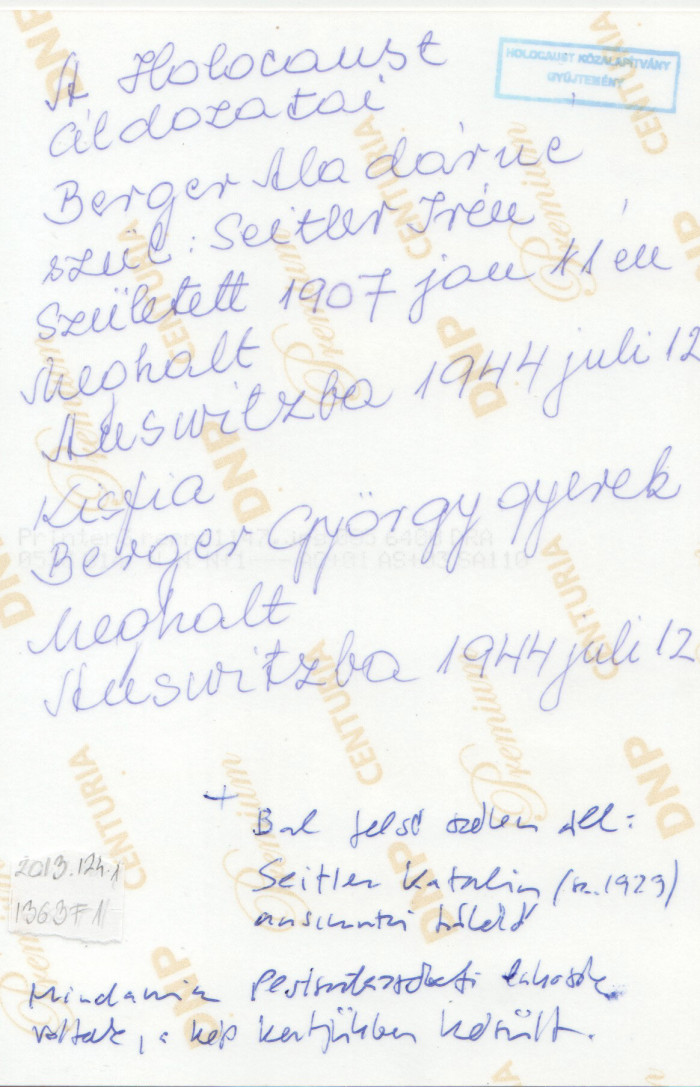 HOLOCAUST KÖZALAPÍTVÁNY
GYŰJTEMÉNY
A Holocaust
áldozatai
Berger Aladárne
szül: Seitler Irén
Született 1907 jan 11 én
Meghalt
Auswitzba 1944 juli 12
Kisfia
Berger György gyerek
Meghalt
Auswitzba 1944 juli 12
+
Bal felső szélen áll:
Seitler Katalin (sz. 1929)
túlélő
2013.124.1
1363F1
Mindannyian lakosok
voltak, a kép kertjükben készült.
DNP
CENTURIA
Premium